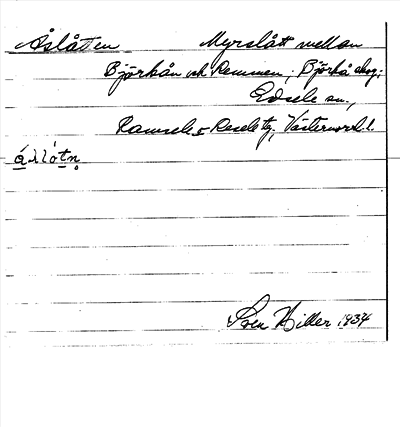 Åslåtten Myrslått mellan
Björkån och Remmen, Björkå skog,
Edsele sn.,
Ramsele o Resele tg, Västernorrl. l.
Sven Hiller 1934